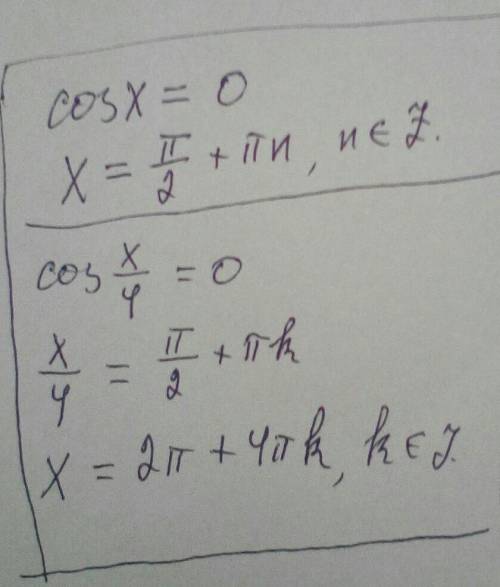 cos x = 0
x = π/2 + πn, n ∈ Z.
cos x/4 = 0
x/4 = π/2 + πk
x = 2π + 4πk, k ∈ Z.